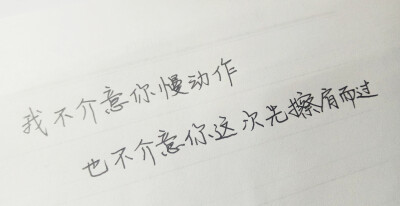 我不介意你慢动作
也不介意你这次先擦肩而过